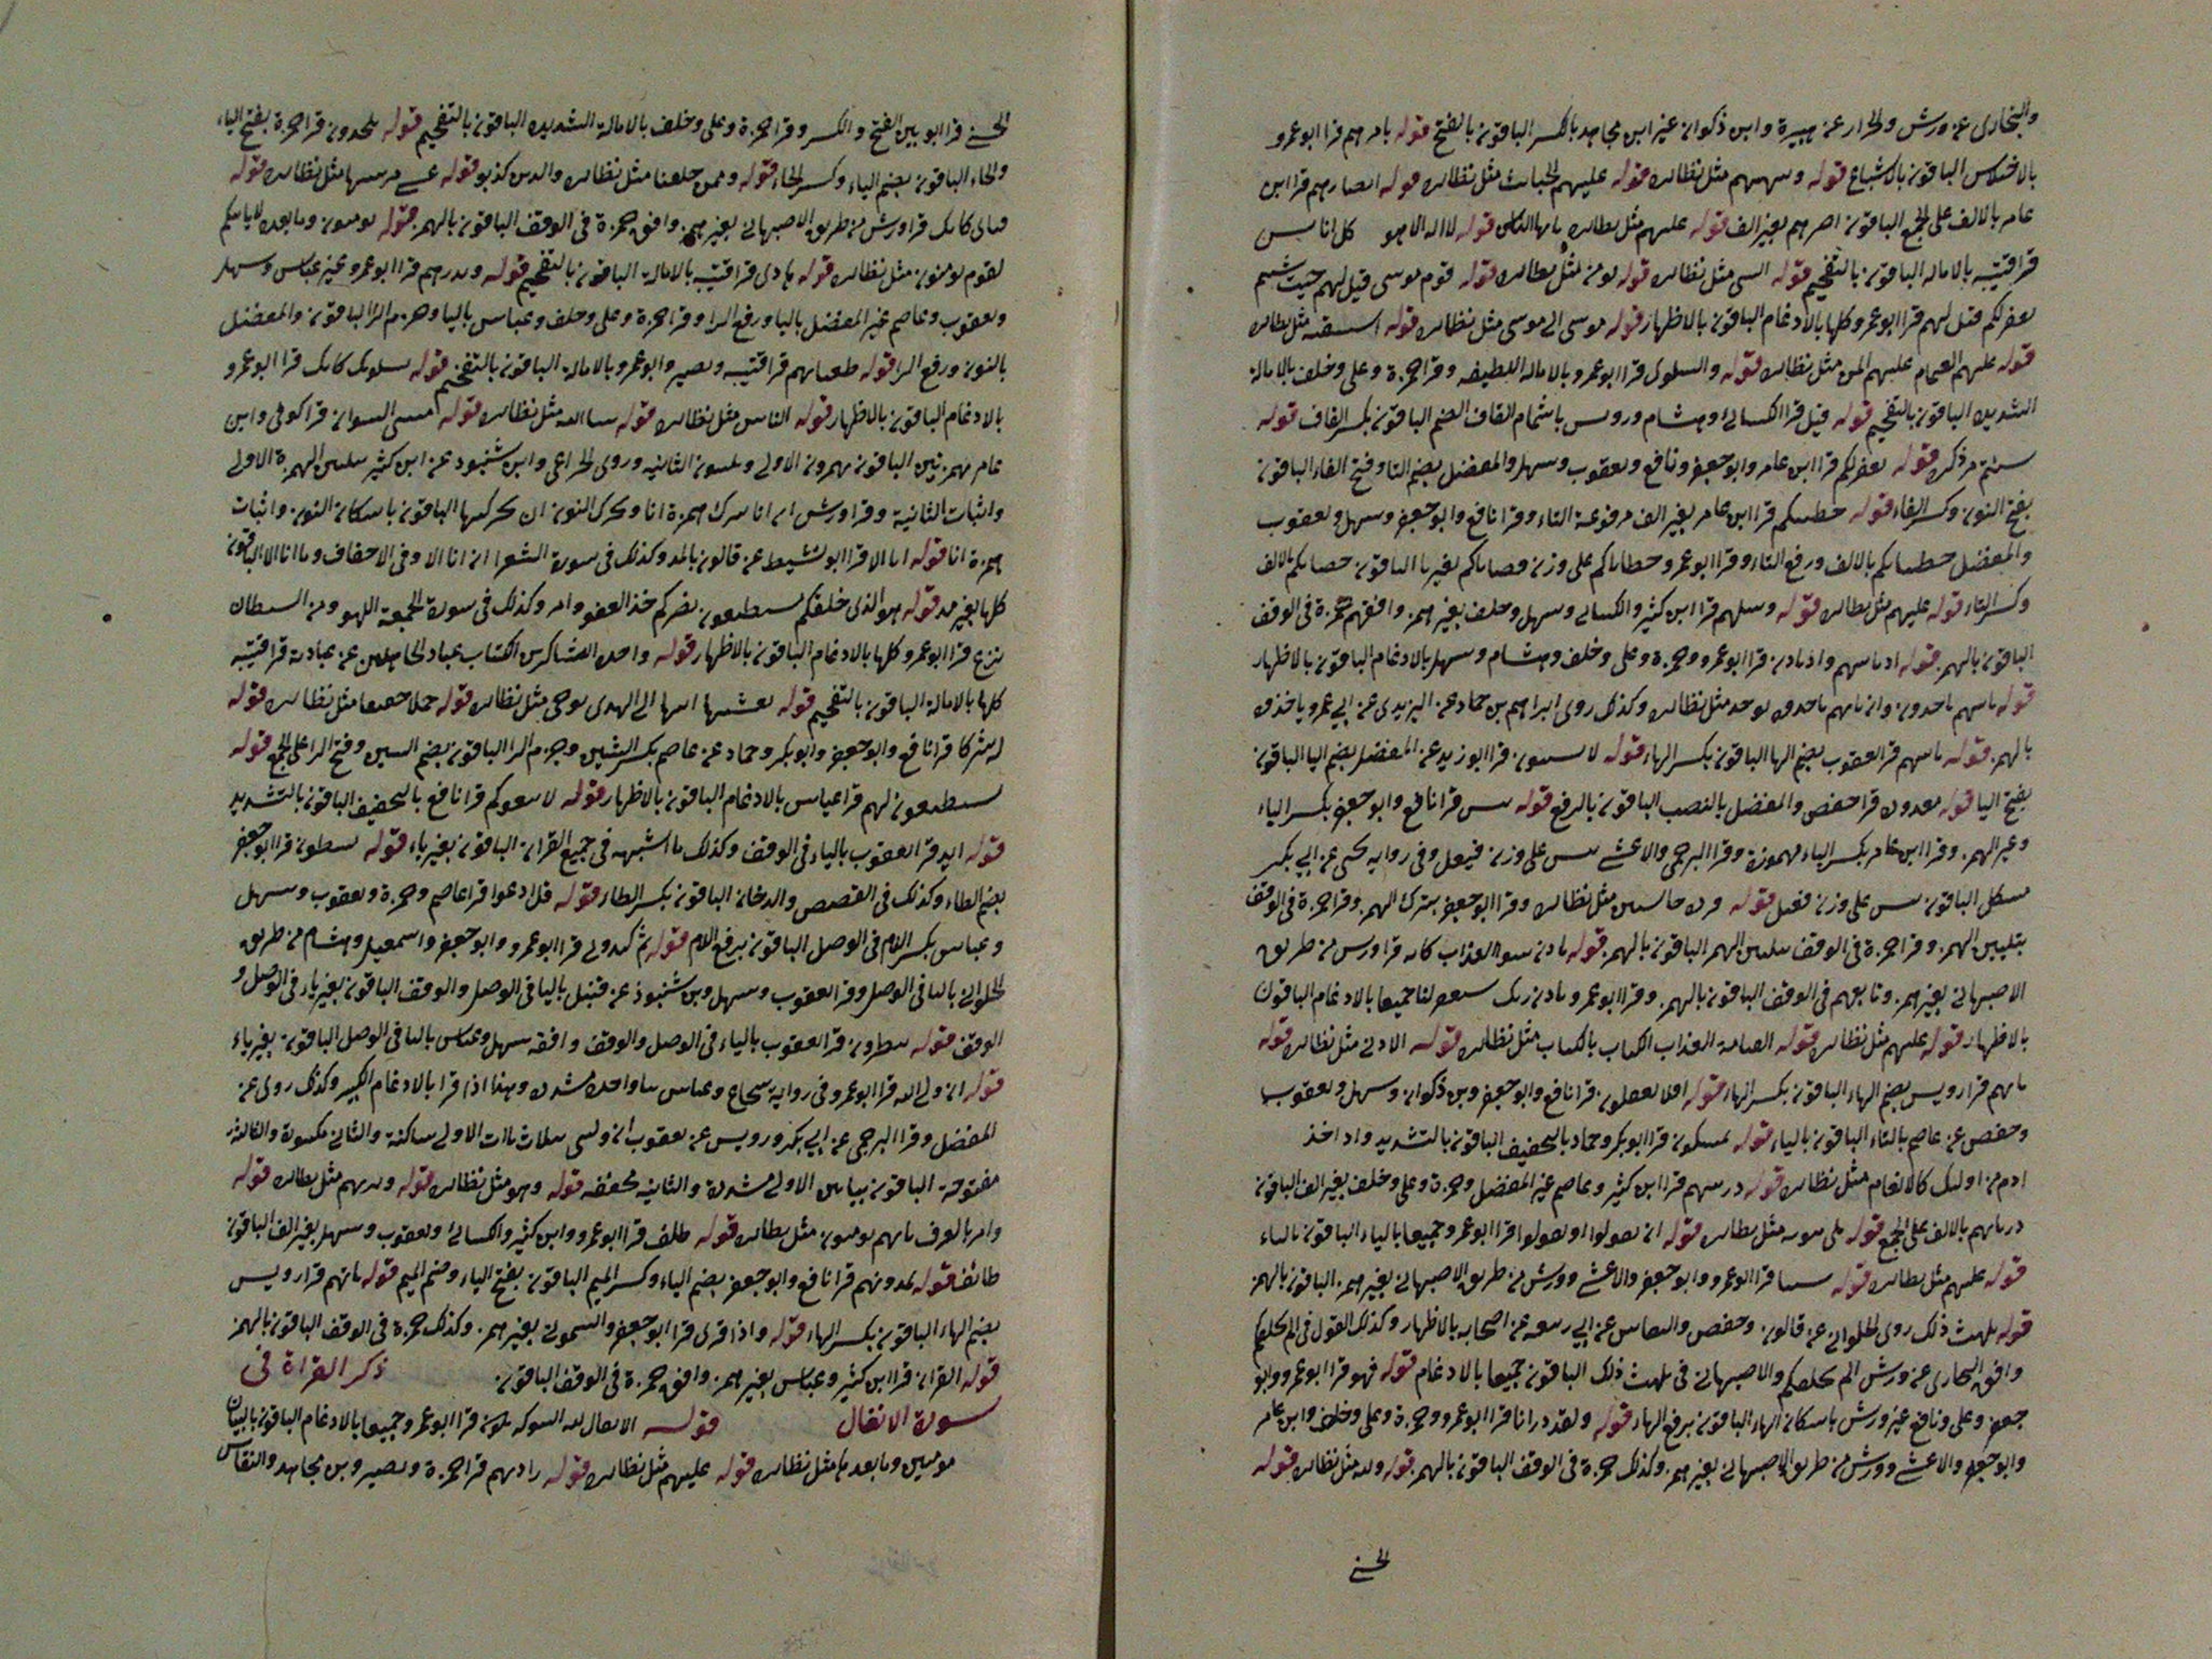 والبخارى عن ورش والخزاز عن هبيرة وابن ذكوان غير ابن مجاهد بالكسر الباقون بالفتح قوله يامرهم قرا ابو عمرو
بالاختلاس الباقون بالاشباع قوله مثل نظائره قوله عليهم الخبائث مثل نظائره قوله اصارهم قرا ابن
عامر بالالف على الجمع الباقون اصرهم بغير الف قوله عليهم مثل نظائره يا ايها الناس قوله لا اله الا هو كل اناس
قرا قتيبه بالاماله الباقون بالتفخيم قوله مثل نظائره قوله مثل نظائره قوله قوم موسى قيل لهم حيث شيتم
نغفر لكم قيل لهم قرا ابو عمرو كلها بالادغام الباقون بالاظهار قوله موسى الى موسى مثل نظائره قوله مثل نظائره
قوله عليهم الغمام عليهم المن مثل نظائره قوله والسلوى قرا ابو عمرو بالاماله اللطيفه وقرا حمزة وعلى وخلف بالامالة
الشديده الباقون بالتفخيم قوله قيل قرا الكسائى وهشام ورويس باشمام القاف الضم الباقون بكسر القاف قوله
شيتم مر ذكره قوله نغفر لكم قرا ابن عامر وابو جعفر ونافع ويعقوب وسهل والمفضل بضم التا وفتح الفاء الباقون
بفتح النون وكسر الفاء قوله خطيئتكم قرا ابن عامر بغير الف مرفوعة التاء وقرا نافع وابو جعفر وسهل ويعقوب
والمفضل خطيئاتكم بالالف ورفع التاء وقرا ابو عمرو خطاياكم على وزن قضاياكم بغير تا الباقون بالالف
وكسر التاء قوله عليهم مثل نظائره قوله وسلهم قرا ابن كثير والكسائى وسهل وخلف بغير همز وافقهم حمزة فى الوقف
الباقون بالهمز قوله اذ تاتيهم واذ تاذن قرا ابو عمرو وحمزة وعلى وخلف وهشام وسهل بالادغام الباقون بالاظهار
قوله مثل نظائره وكذلك روى ابراهيم بن حماد عن اليزيدى عن ابى عمرو ياخذون
بالهمز قوله تاتيهم قرا يعقوب بضم الها الباقون بكسر الهاء قوله لا يسبتون قرا ابو زيد عن المفضل بضم اليا الباقون
بفتح اليا قوله معذرة قرا حفص والمفضل بالنصب الباقون بالرفع قوله بيس قرا نافع وابو جعفر بكسر الباء
وغير الهمز وقرا ابن عامر بكسر الباء مهموزة وقرا البرجمى والاعشى على وزن فيعل وفى رواية يحيى عن ابى بكر
الباقون بئيس على وزن فعيل قوله قردة خاسئين مثل نظائره وقرا ابو جعفر بترك الهمز وقرا حمزة فى الوقف
بتليين الهمز وقرا حمزة فى الوقف بتليين الهمز الباقون بالهمز قوله تاذن سوء العذاب كانه قرا ورش من طريق
الاصبهانى بغير همز وتابعهم فى الوقف الباقون بالهمز وقرا ابو عمرو تاذن ربك سيغفر لنا جميعا بالادغام الباقون
بالاظهار قوله عليهم مثل نظائره قوله القيامة العذاب الكتاب بالكتاب مثل نظائره قوله الادنى مثل نظائره قوله
ياتهم قرا رويس بضم الهاء الباقون بكسر الهاء قوله افلا تعقلون قرا نافع وابو جعفر وبن ذكوان وسهل ويعقوب
وحفص عن عاصم بالتاء الباقون بالياء قوله يمسكون قرا ابو بكر وحماد بالتخفيف الباقون بالتشديد واذ اخذ
ادم من اولئك كالانعام مثل نظائره قوله ذريتهم قرا ابن كثير وعاصم غير المفضل وحمزة وعلى وخلف بغير الف الباقون
ذرياتهم بالالف على الجمع قوله بلى مثل نظائره قوله ان تقولوا او تقولوا قرا ابو عمرو جميعا بالياء الباقون بالتاء
قوله عليهم مثل نظائره قوله شئنا قرا ابو عمرو وابو جعفر والاعشى وورش من طريق الاصبهانى بغير همز الباقون بالهمز
قوله يلهث ذلك روى الحلوانى عن قالون وحفص والنقاش عن ابى ربيعه عن اصحابه بالاظهار وكذلك القول فى الم نخلقكم
وافق البخارى عن ورش الم نخلقكم والاصبهانى فى يلهث ذلك الباقون جميعا بالادغام قوله فهو قرا ابو عمرو وابو
جعفر وعلى ونافع غير ورش باسكان الهاء الباقون برفع الهاء قوله ولقد ذرانا قرا ابو عمرو وحمزة وعلى وخلف وابن عامر
وابو جعفر والاعشى وورش من طريق الاصبهانى بغير همز وكذلك حمزة فى الوقف الباقون بالهمز قوله ولله مثل نظائره قوله
الحسنى
الحسنى قرا ابو بين الفتح والكسر وقرا حمزة وعلى وخلف بالامالة الشديده الباقون بالتفخيم قوله يلحدون قرا حمزة بفتح الياء
والحاء الباقون بضم الياء وكسر الحاء قوله وممن خلقنا مثل نظائره والذين كذبو قوله عسى مرسيها مثل نظائره قوله
فباى كانك قرا ورش من طريق الاصبهانى بغير همز وافق حمزة فى الوقف الباقون بالهمز قوله يومنون وما بعده لا ياتيكم
لقوم يومنون مثل نظائره قوله هادى قرا قتيبه بالامالة الباقون بالتفخيم قوله ويذرهم قرا ابو عمرو غير عباس وسهل
ويعقوب وعاصم غير المفضل باليا ورفع الرا وقرا حمزة وعلى وخلف وعباس باليا وجزم الرا الباقون والمفضل
بالنون ورفع الرا قوله طغيانهم قرا قتيبه ونصير وابو عمرو بالامالة الباقون بالتفخيم قوله يسلونك كانك قرا ابو عمرو
بالادغام الباقون بالاظهار قوله الناس مثل نظائره قوله شا الله مثل نظائره قوله مسنى السو ان قرا كوفى وابن
عامر بهمزتين الباقون يهمزون الاولى ويلينون الثانيه وروى الخزاعى وابن شنبوذ عن ابن كثير بتليين الهمزة الاولى
واثبات الثانية وقرا ورش ان انا بترك همزة انا وتحرك النون ان بحركتها الباقون باسكان النون واثبات
همزة انا قوله انا الا قرا ابو نشيط عن قالون بالمد وكذلك فى سورة الشعرا ان انا الا وفى الاحقاف وما انا الا الباقون
كلها بغير مد قوله هو الذى خلقكم يستطيعون نصركم خذ العفو وامر وكذلك فى سورة الجمعة اللهو ومن الشيطان
نزغ قرا ابو عمرو كلها بالادغام الباقون بالاظهار قوله واحده الشاكرين الكتاب عباد الجاهلين عن عبادته قرا قتيبه
كلها بالامالة الباقون بالتفخيم قوله تغشيها اتيها الى الهدى يوحى مثل نظائره قوله حملا خفيفا مثل نظائره قوله
له شركا قرا نافع وابو جعفر وابو بكر وحماد عن عاصم بكسر الشين وجزم الرا الباقون بضم الشين وفتح الرا على الجمع قوله
يستطيعون لهم قرا عباس بالادغام الباقون بالاظهار قوله لا يتبعوكم قرا نافع بالتخفيف الباقون بالتشديد
قوله ايد قرا يعقوب بالياء فى الوقف وكذلك ما اشبهه فى جميع القران الباقون بغير ياء قوله يبطشون قرا ابو جعفر
بضم الطاء وكذلك فى القصص والدخان الباقون بكسر الطاء قوله قل ادعوا قرا عاصم وحمزة ويعقوب وسهل
وعباس بكسر اللام فى الوصل الباقون برفع اللام قوله ثم كيدونى قرا ابو عمرو وابو جعفر واسمعيل وهشام من طريق
الحلوانى باليا فى الوصل وقرا يعقوب وسهل وبن شنبوذ عن قنبل باليا فى الوصل والوقف الباقون بغير ياء فى الوصل و
الوقف قوله تنظرون قرا يعقوب بالياء فى الوصل والوقف وافقه سهل وعباس باليا فى الوصل الباقون بغير ياء
قوله ان ولى الله قرا ابو عمرو فى رواية شجاع وعباس بيا واحده مشدده وهذا اذا قرا بالادغام الكبير وكذلك روى عن
المفضل وقرا البرجمى عن ابى بكر ورويس عن يعقوب ان وليى بثلاث ياات الاولى ساكنة والثانى مكسورة والثالثة
مفتوحة الباقون بيايين الاولى مشددة والثانية مخففه قوله وهو مثل نظائره قوله مثل نظائره قوله
وامر بالعرف تاتهم يومنون مثل نظائره قوله طيف قرا ابو عمرو وابن كثير والكسائى ويعقوب وسهل بغير الف الباقون
طائف قوله يمدونهم قرا نافع وابو جعفر بضم الياء وكسر الميم الباقون بفتح الياء وضم الميم قوله تاتهم قرا رويس
بضم الهاء الباقون بكسر الهاء قوله واذا قرى قرا ابو جعفر والشمونى بغير همز وكذلك حمزة فى الوقف الباقون بالهمز
قوله القران قرا ابن كثير وعباس بغير همز وافق حمزة فى الوقف الباقون ذكر القراة فى
سورة الانفال قوله الانفال لله الشوكه تكون قرا ابو عمرو جميعا بالادغام الباقون بالبيان
مومنين وما بعد ها مثل نظائره قوله عليهم مثل نظائره قوله زادتهم قرا حمزة ونصير وبن مجاهد والنقاش